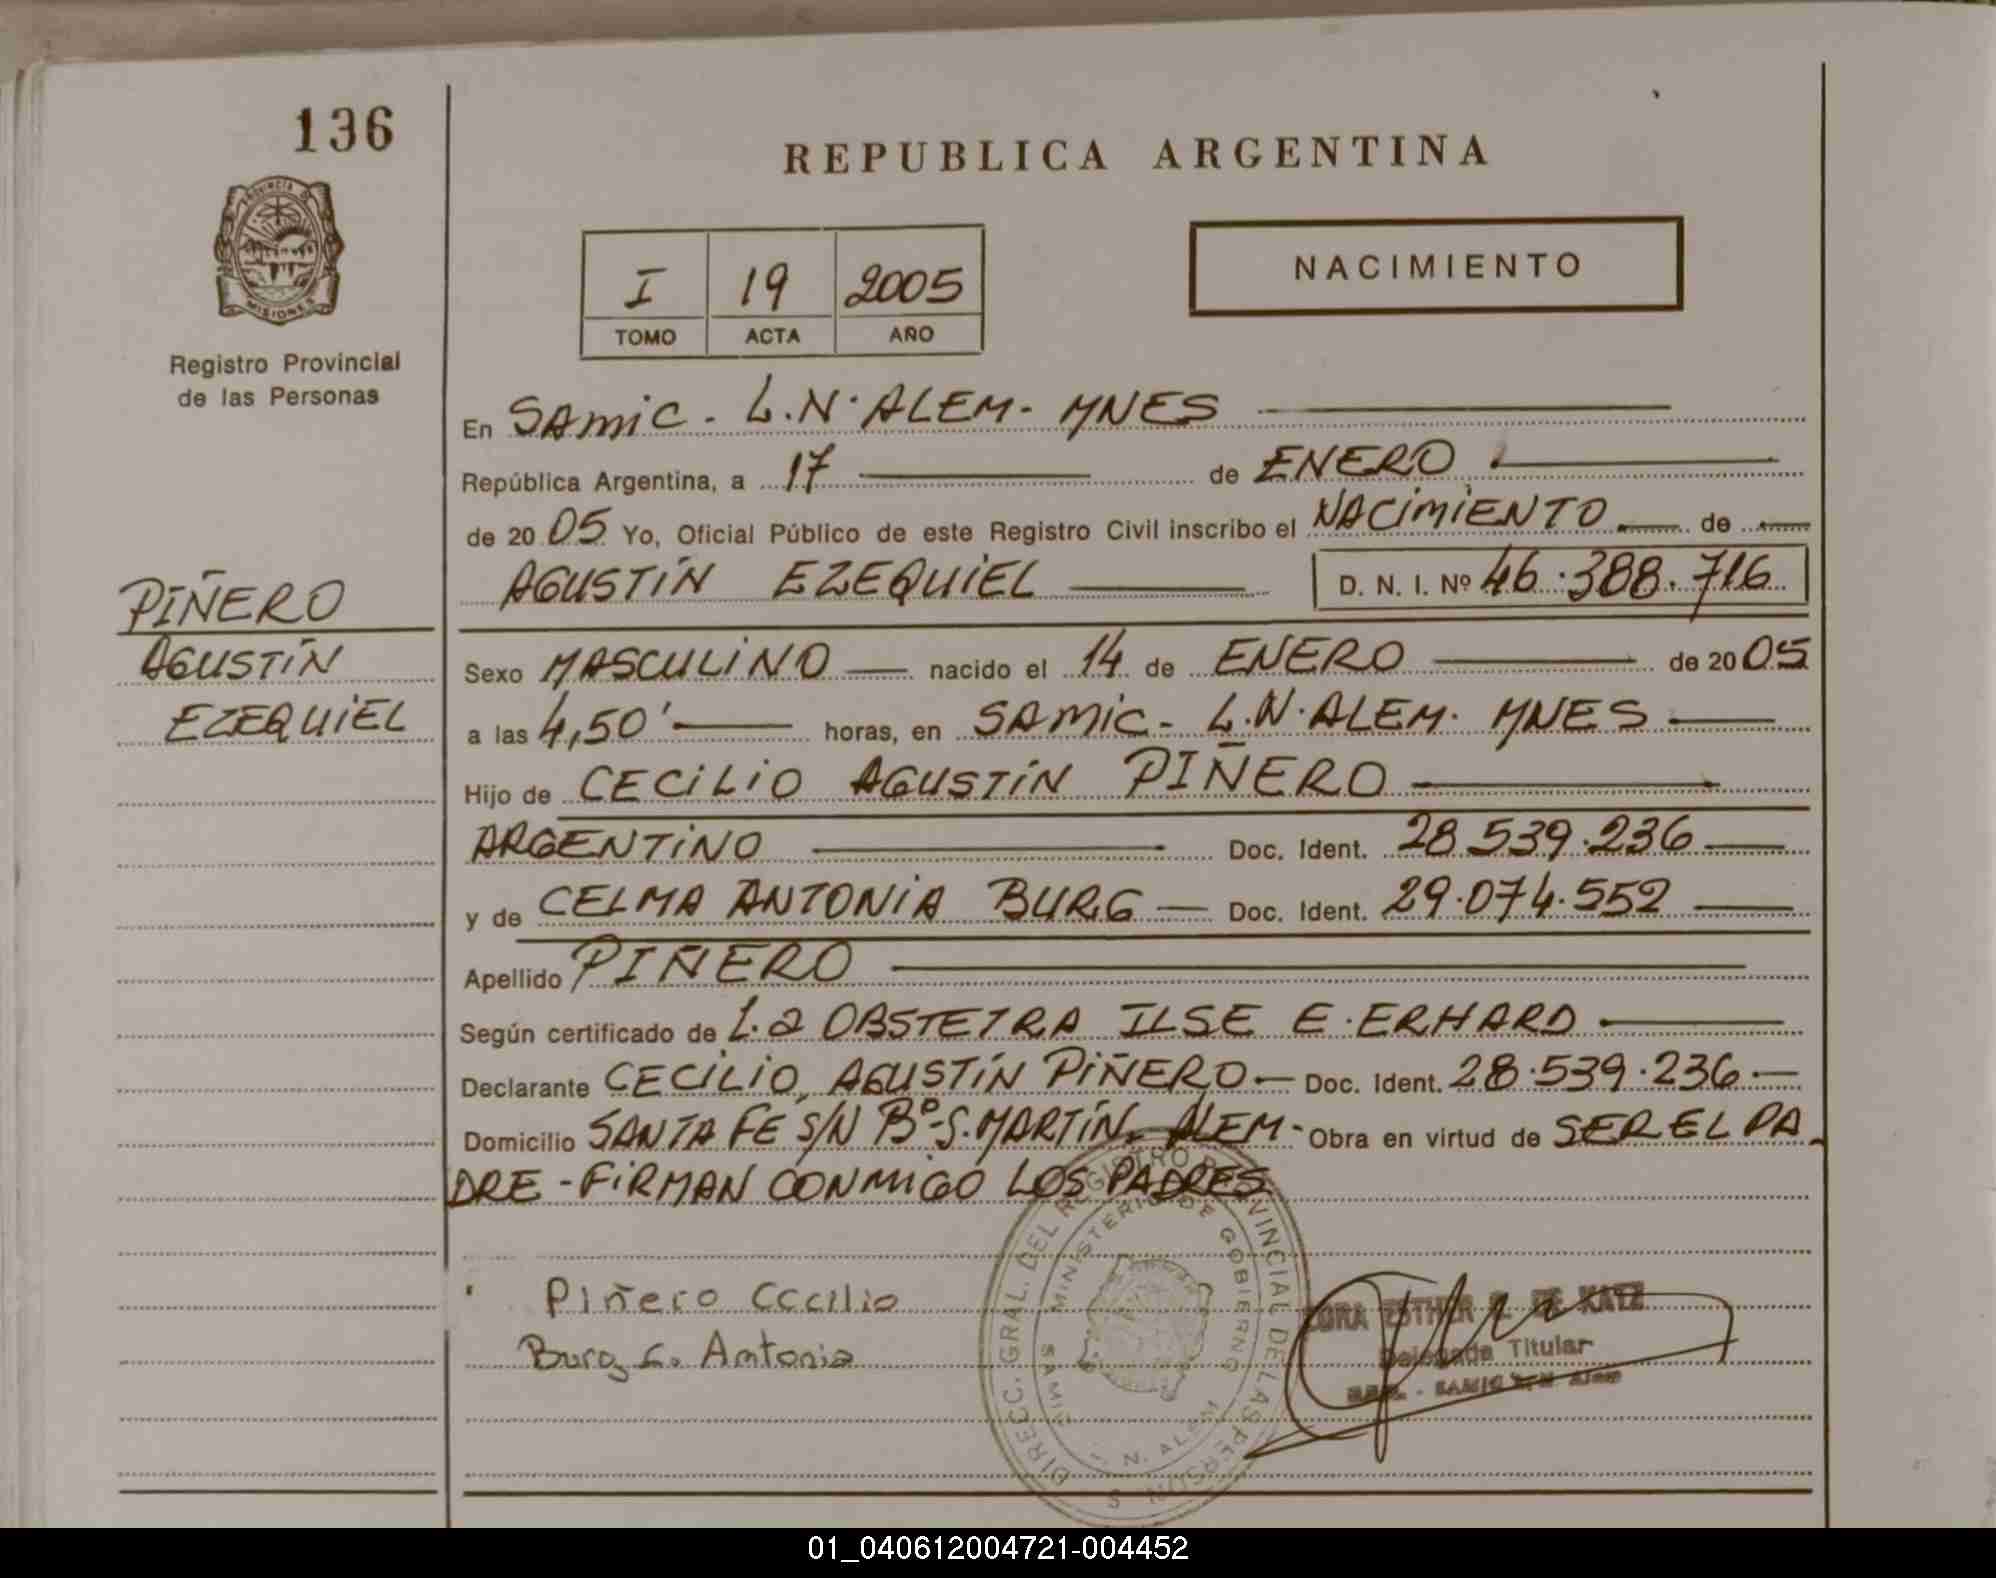 136
PROVINCIA DE
MISIONES
Registro Provincial
de las Personas
PIÑERO
AGUSTÍN
EZEQUIEL
REPUBLICA ARGENTINA
I 19 2005
TOMO ACTA AÑO
NACIMIENTO
En SAMIC - L.N. ALEM - MNES
República Argentina, a 17 de ENERO
de 20 05 Yo, Oficial Público de este Registro Civil inscribo el NACIMIENTO de
AGUSTÍN EZEQUIEL D. N. I. Nº 46.388.716
Sexo MASCULINO nacido el 14 de ENERO de 20 05
a las 4,50' horas, en SAMIC - L.N. ALEM. MNES
Hijo de CECILIO AGUSTÍN PIÑERO
ARGENTINO Doc. Ident. 28.539.236
y de CELMA ANTONIA BURG Doc. Ident. 29.074.552
Apellido PIÑERO
Según certificado de La OBSTETRA ILSE E. ERHARD
Declarante CECILIO AGUSTÍN PIÑERO Doc. Ident. 28.539.236
Domicilio SANTA FE S/N Bº S. MARTÍN. ALEM - Obra en virtud de SER EL PA
DRE - FIRMAN CONMIGO LOS PADRES
Piñero Cecilio
Burg C. Antonia
DIRECC. GRAL. DEL REGISTRO PROVINCIAL DE LAS PERSONAS
MINISTERIO DE GOBIERNO
SAMIC L. N. ALEM
ESTHER DE KATZ
Delegada Titular
SAMIC L. N. Alem
01_040612004721-004452